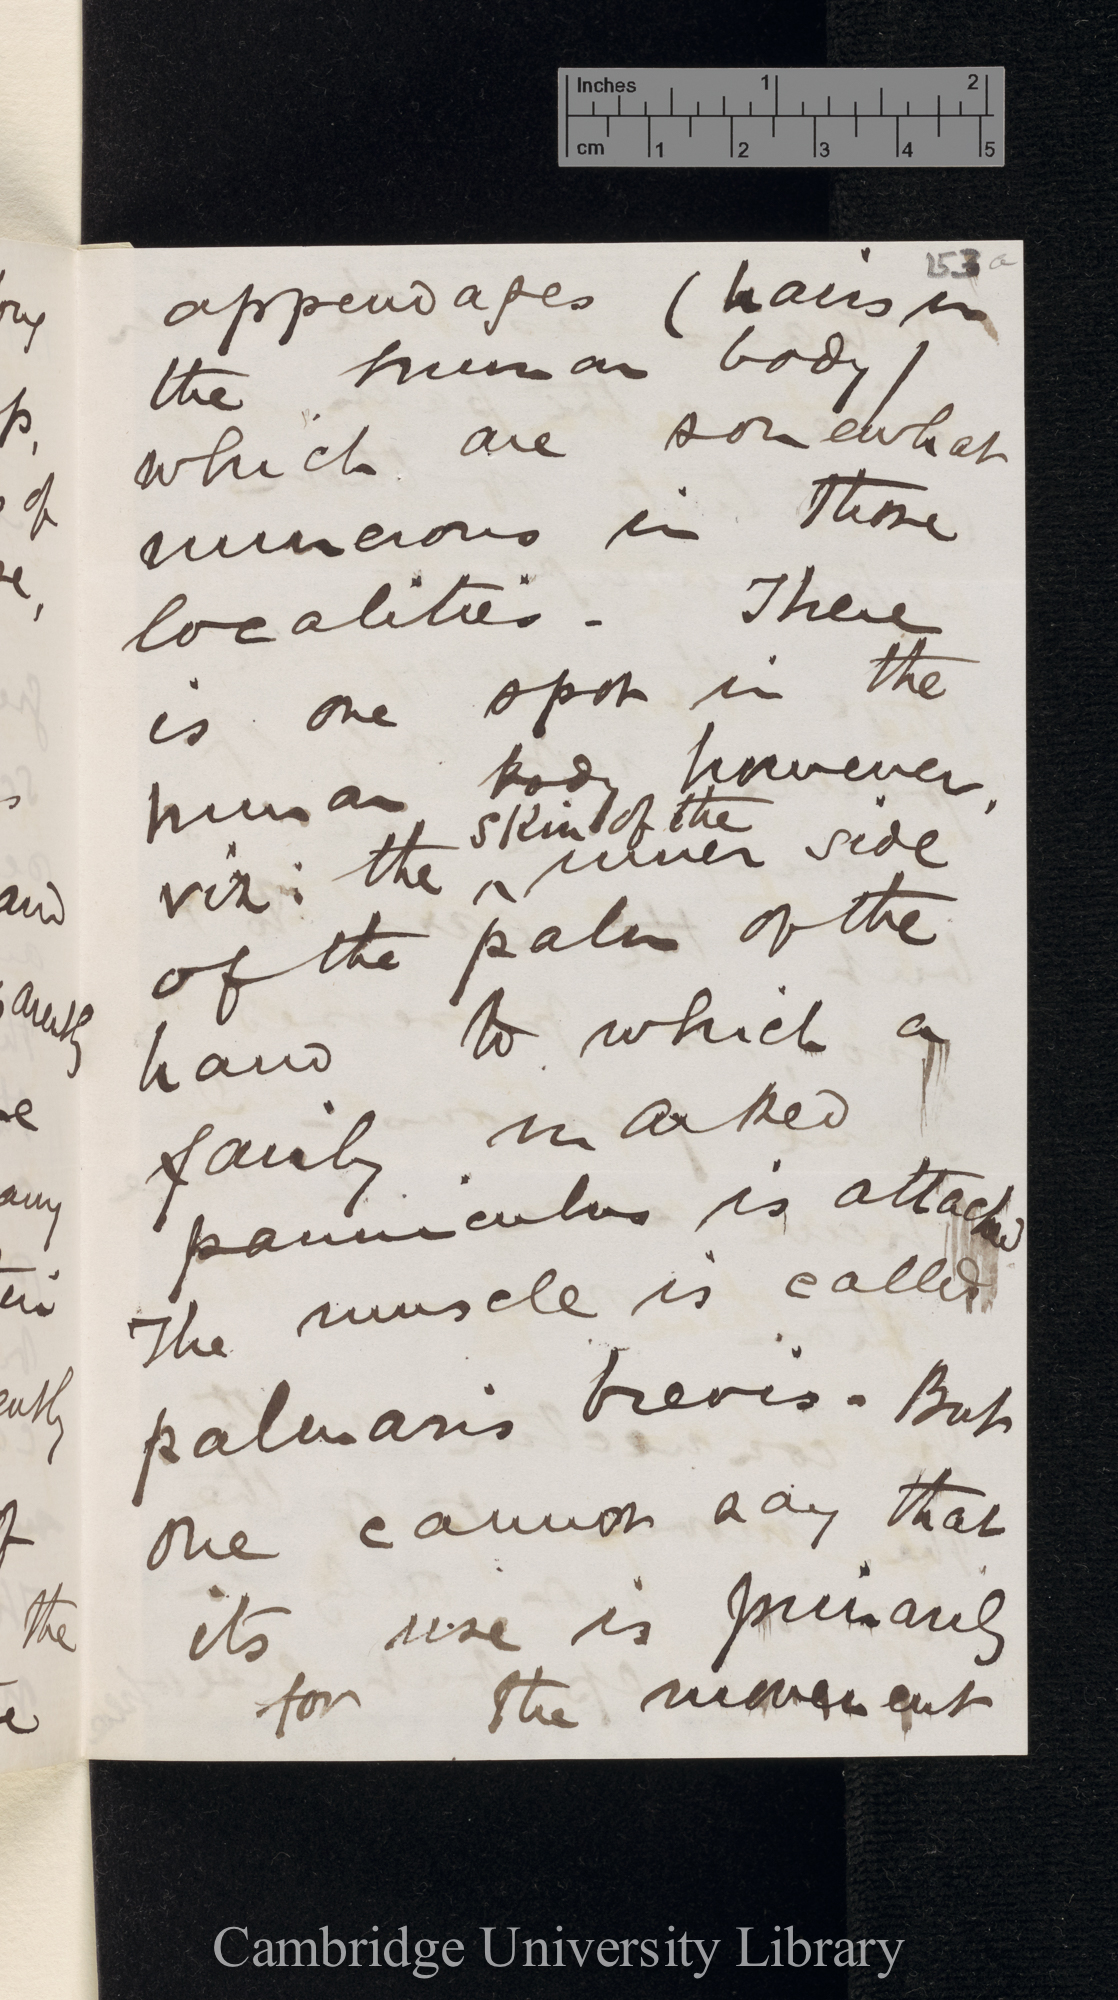 153a
appendages (hairs in
the human body)
which are somewhat
numerous in those
localities. There
is one spot in the
human body however,
skin of the
viz: the ^ inner side
of the palm of the
hand to which a
fairly marked
panniculus is attached
The muscle is called
palmaris brevis. But
one cannot say that
its use is primarily
for the movement
of
and
the
Inches 1 2
cm 1 2 3 4 5
Cambridge University Library